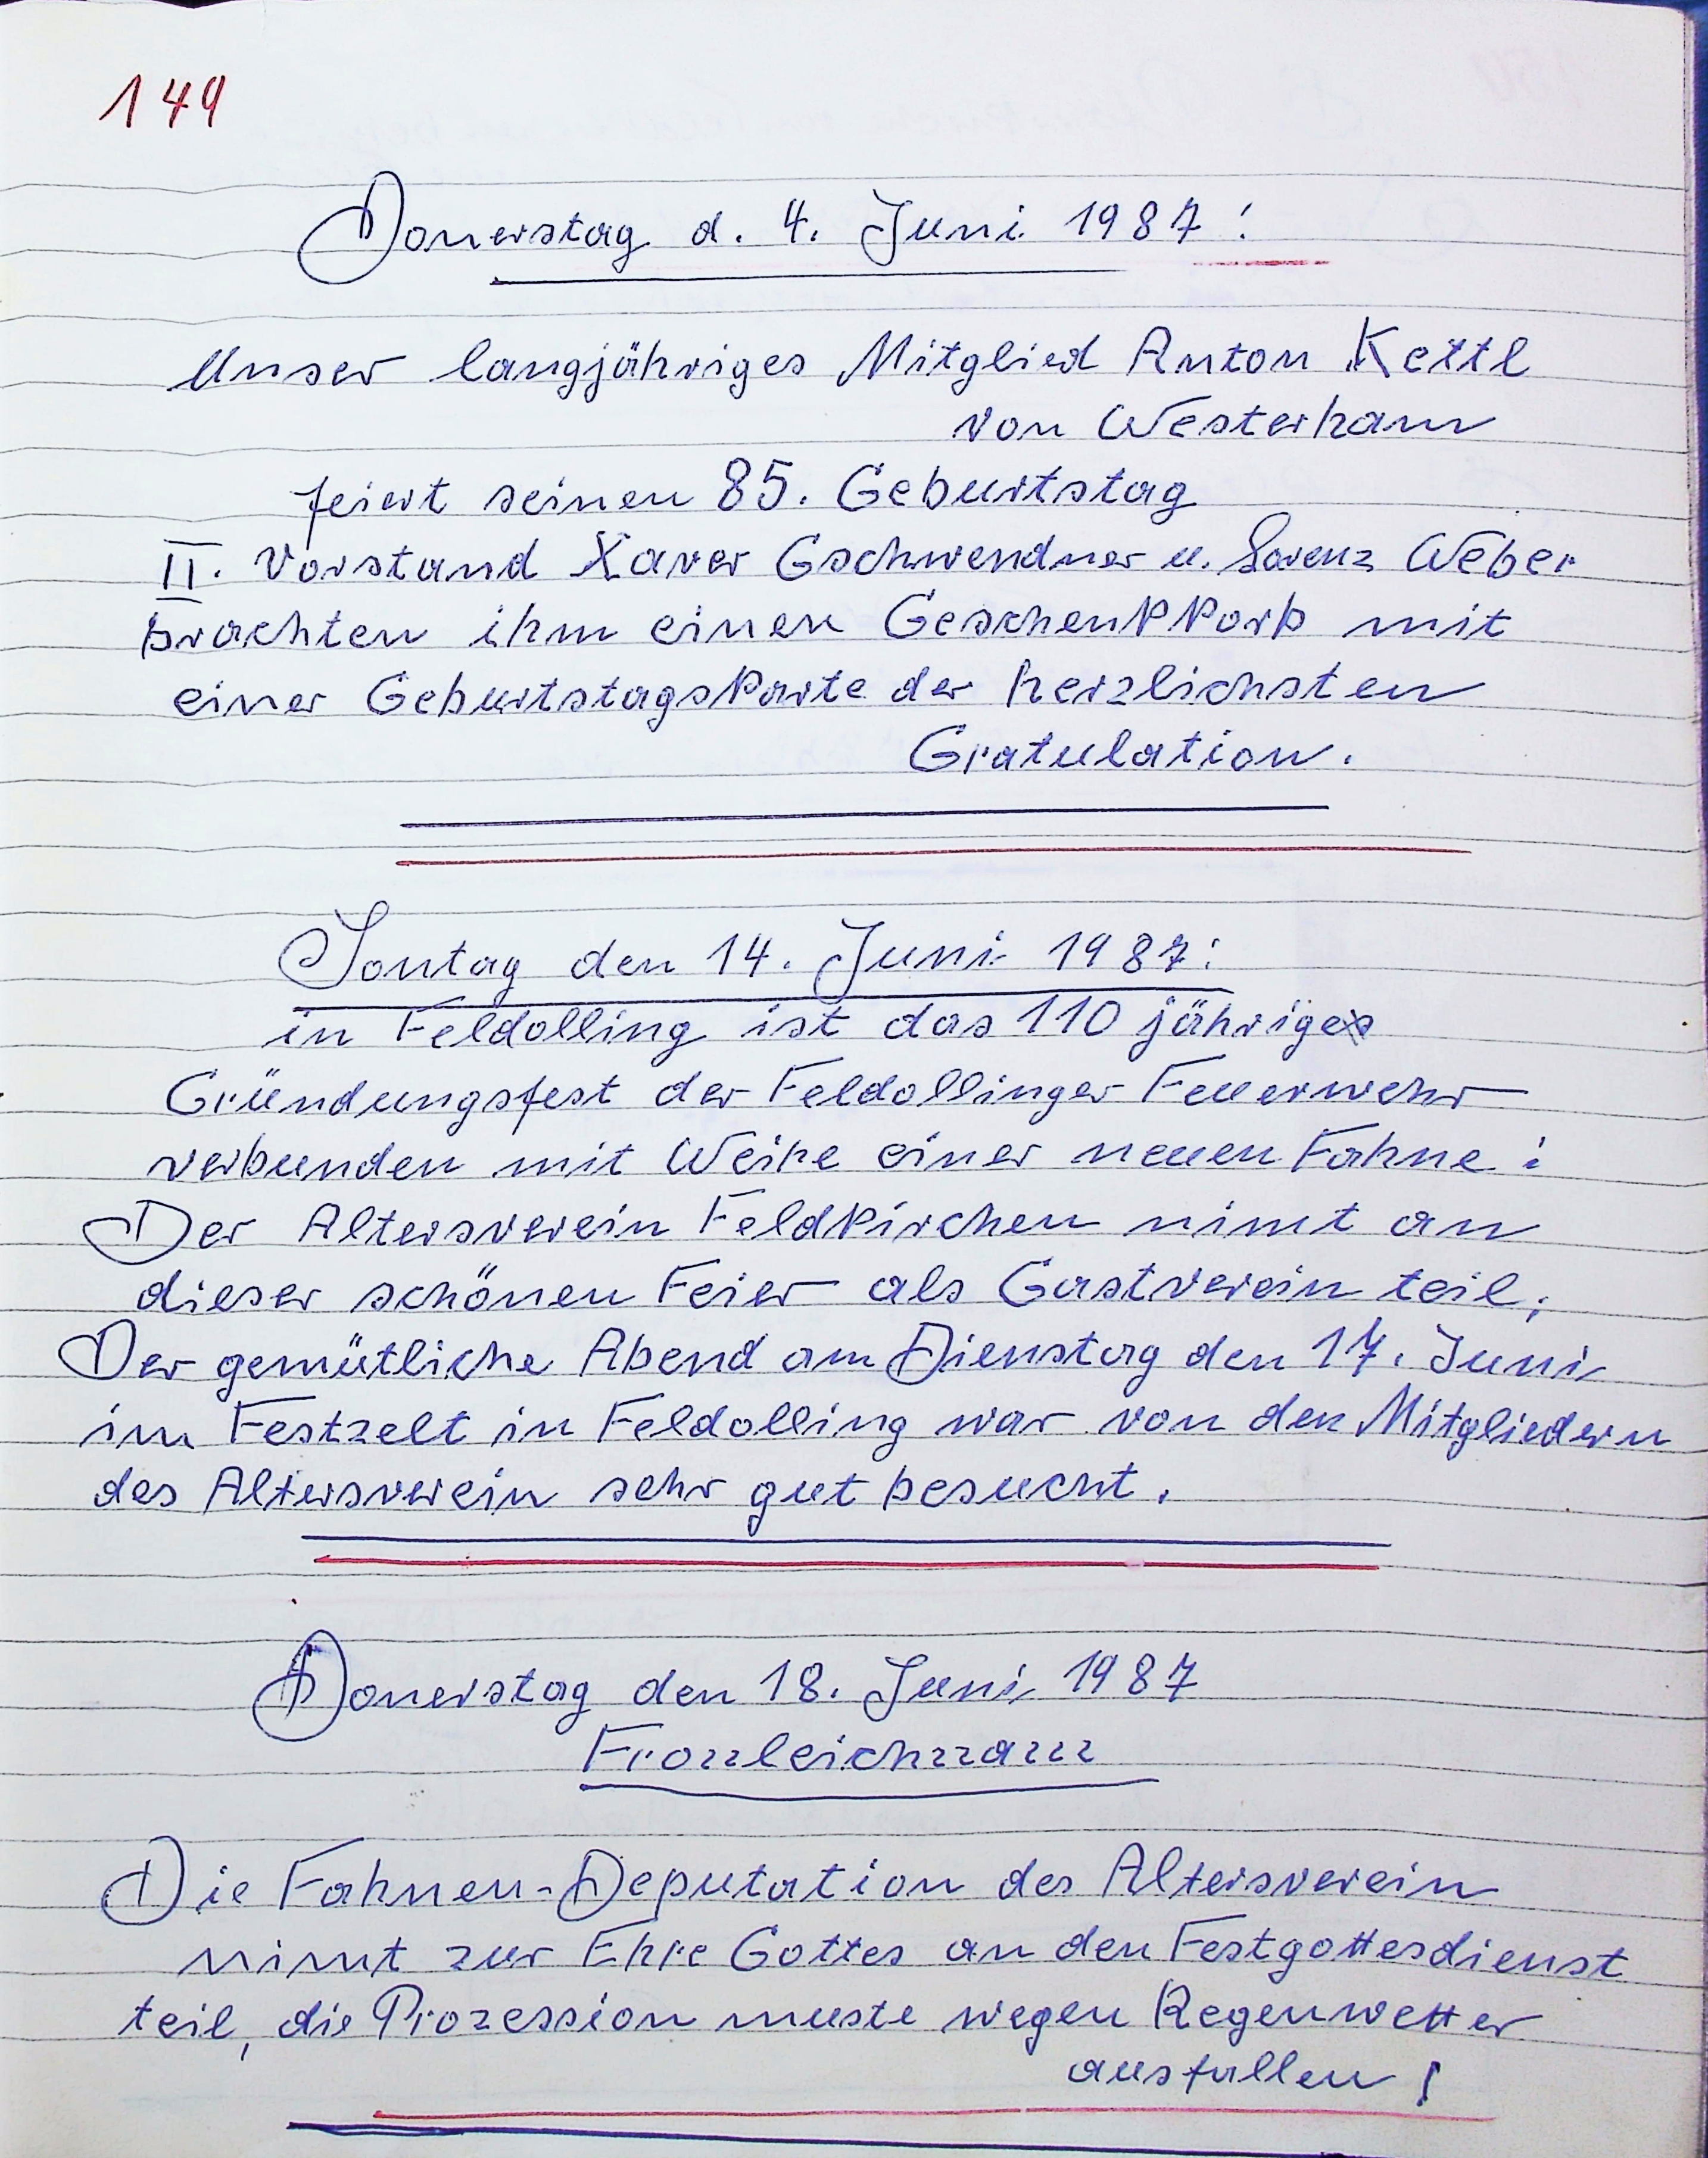 149
Donerstag d. 4. Juni 1987:
Unser langjähriges Mitglied Anton Kettl
von Westerham
feiert seinen 85. Geburtstag
II. Vorstand Xaver Gschwendner u. Lorenz Weber
brachten ihm einen Geschenkkorb mit
einer Geburtstagskarte der herzlichsten
Gratulation.
Sontag den 14. Juni 1987:
in Feldolling ist das 110 jährige
Gründungsfest der Feldollinger Feuerwehr
verbunden mit Weihe einer neuen Fahne:
Der Altersverein Feldkirchen nimt an
dieser schönen Feier als Gastverein teil;
Der gemütliche Abend am Dienstag den 17. Juni
im Festzelt in Feldolling war von den Mitgliedern
des Altersverein sehr gut besucht.
Donerstag den 18. Juni 1987
Fronleichnam
Die Fahnen-Deputation des Altersverein
nimt zur Ehre Gottes an den Festgottesdienst
teil, die Prozession muste wegen Regenwetter
ausfallen!